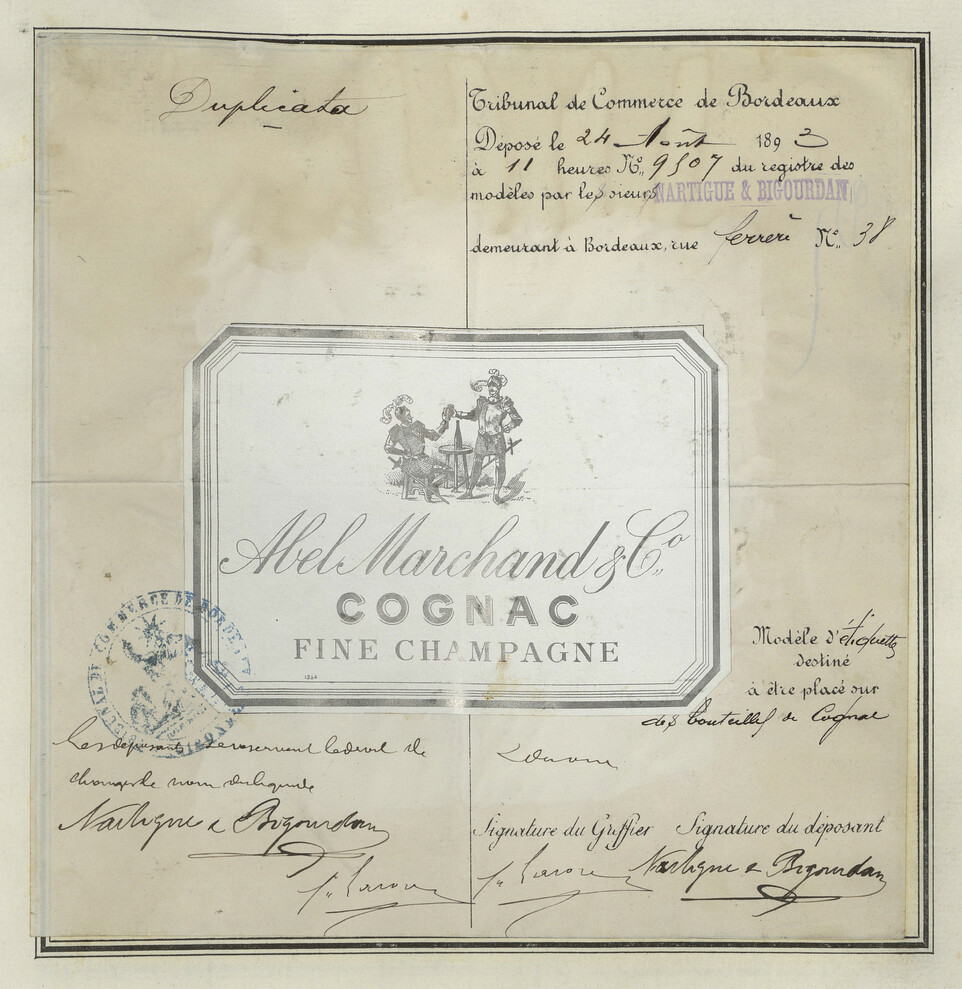 Duplicata
Tribunal de Commerce de Bordeaux
Déposé le 24 Août 1893
à 11 heures No 9507 du registre des
modèles par les sieurs NARTIGUE & BIGOURDAN
demeurant à Bordeaux, rue ferrère No 38
Abel Marchand & Co
COGNAC
FINE CHAMPAGNE
TRIBUNAL DE COMMERCE DE BORDEAUX
Modèle d'étiquette
destiné
à être placé sur
des bouteilles de Cognac
Les déposants se réservent le droit de
changer le nom du liquide
Nartigue & Bigourdan
Signature du Greffier Signature du déposant
Nartigue & Bigourdan